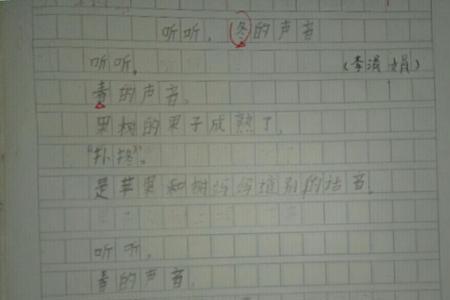 听听，冬的声音
(李涓涓)
听听，
青的声音。
果树的果子成熟了，
“扑扑”。
是苹果和树妈妈道别的话音。
听听，
青的声音，